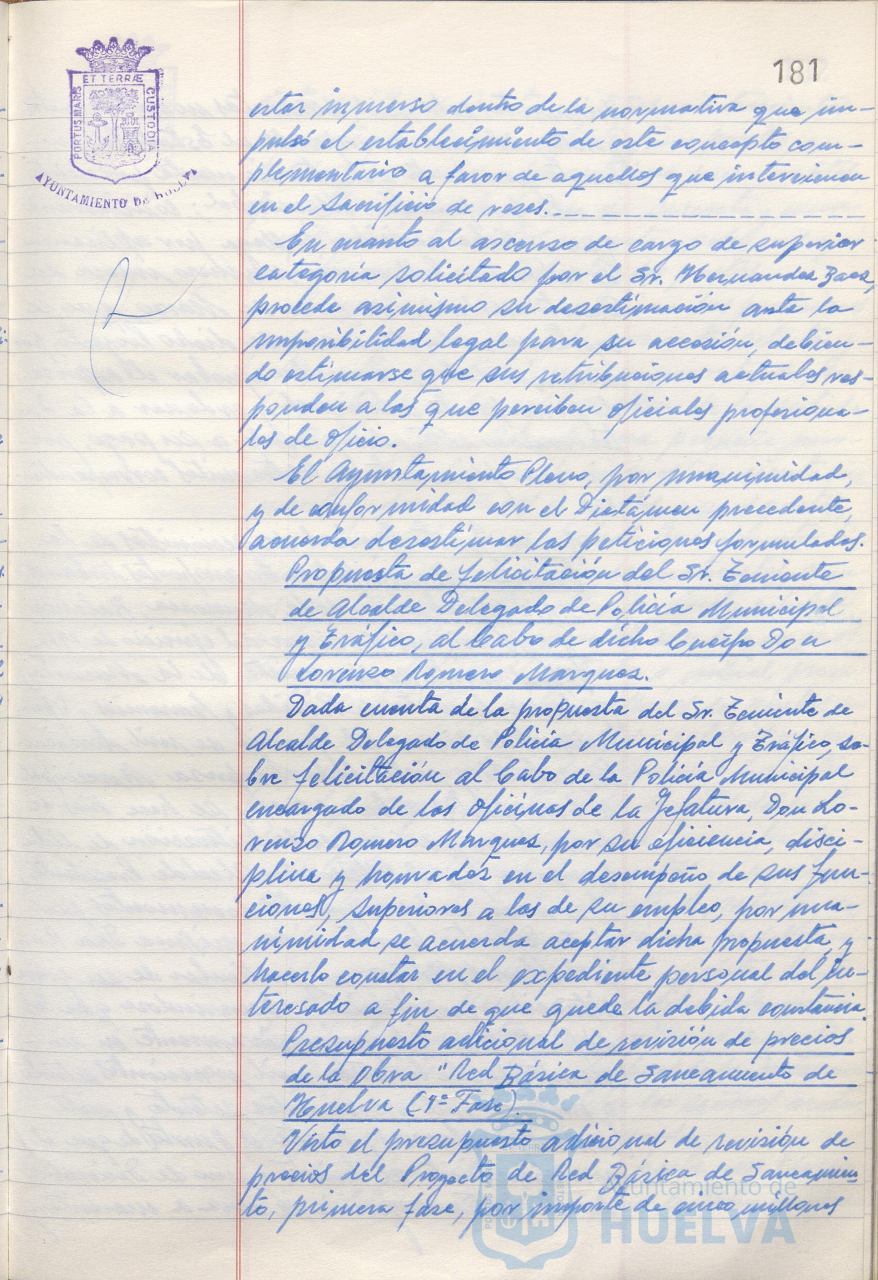 181
PORTUS MARIS
ET TERRÆ
CUSTODIA
AYUNTAMIENTO DE HUELVA
estar inmerso dentro de la normativa que im-
pulsó el establecimiento de este concepto com-
plementario a favor de aquellos que intervienen
en el sacrificio de reses.
En cuanto al ascenso de cargo de superior
categoría solicitado por el Sr. Hernandez Baez,
procede asimismo su desestimación ante la
imposibilidad legal para su accesión, debien-
do estimarse que sus retribuciones actuales res-
ponden a las que perciben oficiales profesiona-
les de oficio.
El Ayuntamiento Pleno, por unanimidad,
y de conformidad con el Dictámen precedente,
acuerda desestimar las peticiones formuladas.
Propuesta de felicitación del Sr. Teniente
de Alcalde Delegado de Policía Municipal
y Tráfico, al Cabo de dicho Cuerpo Don
Lorenzo Romero Marquez.
Dada cuenta de la propuesta del Sr. Teniente de
Alcalde Delegado de Policía Municipal y Tráfico, so-
bre felicitación al Cabo de la Policía Municipal
encargado de las Oficinas de la Jefatura, Don Lo-
renzo Romero Marquez, por su eficiencia, disci-
plina y honradez en el desempeño de sus fun-
ciones, superiores a las de su empleo, por una-
nimidad se acuerda aceptar dicha propuesta, y
hacerlo constar en el expediente personal del in-
teresado a fin de que quede la debida constancia.
Presupuesto adicional de revisión de precios
de la Obra "Red Básica de Saneamiento de
Huelva (1ª Fase).
Visto el presupuesto adicional de revisión de
precios del Proyecto de Red Básica de Saneamien
to, primera fase, por importe de cinco millones
Ayuntamiento de
HUELVA